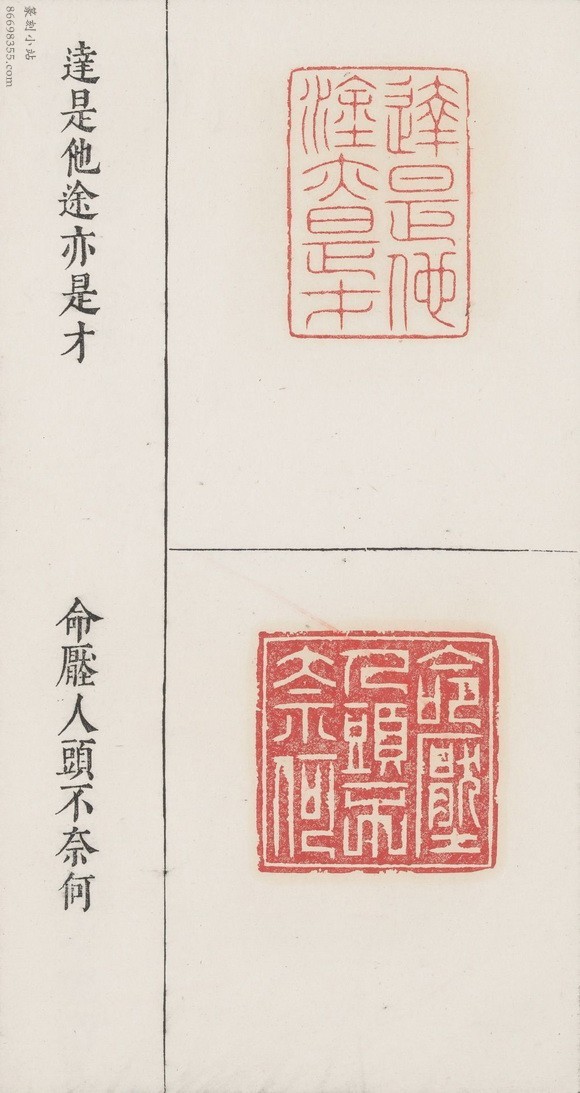 達是他途亦是才
達是他途亦是才
命壓人頭不奈何
命壓人頭不奈何
篆刻小站
86698355.com